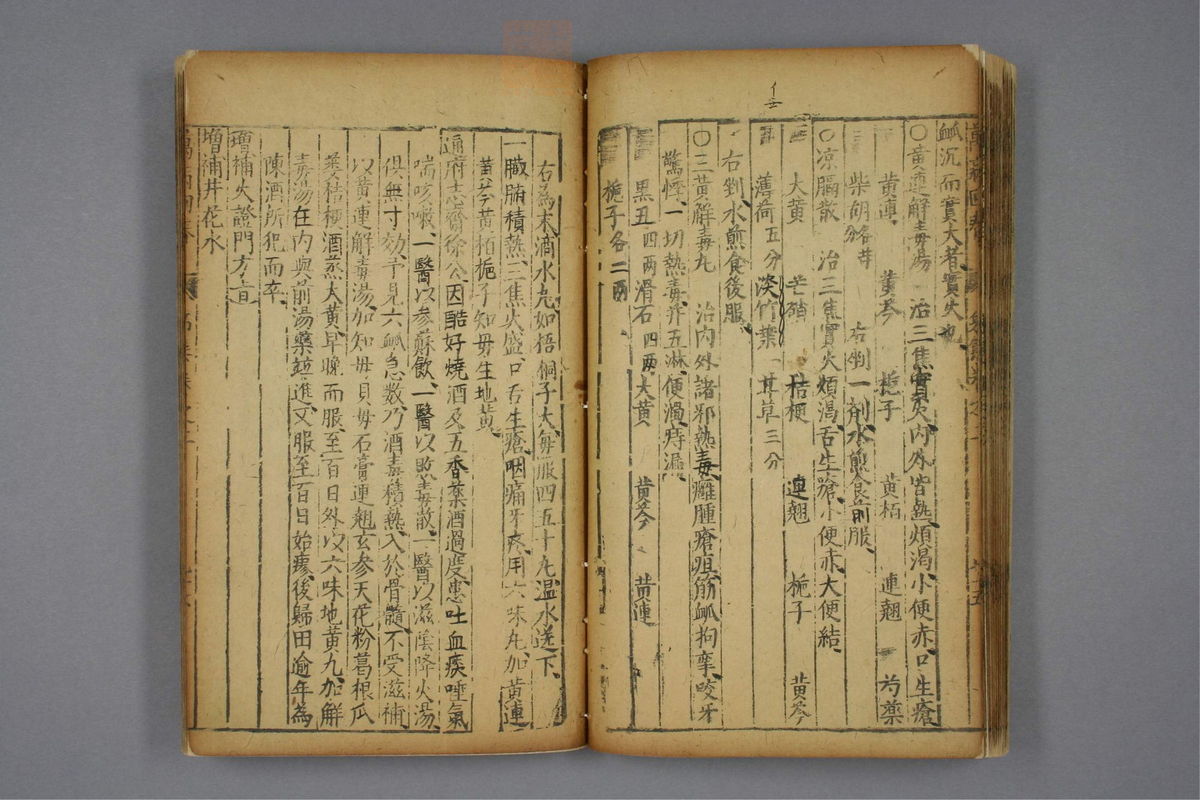 脉沉而實大者實火也
○黄連解毒湯 治三焦實火内外皆熱煩渴小便赤口生瘡
黄連 黄芩 梔子 黄柏 連翹 芍藥
柴胡各等分 右剉一劑水煎食前服
○凉膈散 治三焦實火煩渴舌生瘡小便赤大便結
大黄 芒硝 桔梗 連翹 梔子 黄芩
薄荷五分 淡竹葉 甘草三分
右剉水煎食後服
○三黄解毒丸 治内外諸邪熱毒癰腫瘡疽筋脉拘攣咬牙
驚悸一切熱毒并五淋便濁痔漏
黒丑四兩 滑石四兩 大黄 黄芩 黄連
梔子各二兩
右為末滴水丸如梧桐子大每服四五十丸温水送下
一臓腑積熱三焦火盛口舌生瘡咽痛牙疼用六味丸加黄連
黄芩黄柏梔子知毋生地黄
通府志齋徐公因酷好燒酒及五香藥酒過度患吐血痰唾氣
喘咳嗽一醫以参蘇飲一醫以敗毒散一醫以滋陰降火湯
俱無寸効予見六脉急数乃酒毒積熱入於骨髓不受滋補
以黄連解毒湯加知毋貝毋石膏連翹玄参天花粉葛根瓜
蔞桔梗酒蒸大黄早晚而服至百日外以六味地黄丸加解
毒湯在内與前湯藥竝進又服至百日始瘳後歸田逾年為
陳酒所犯而卒
增補火證門方旨
增補井花水